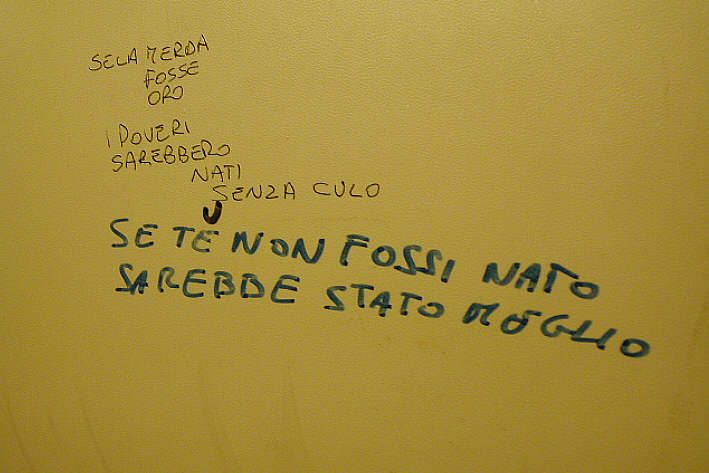 SE LA MERDA
FOSSE
ORO
I POVERI
SAREBBERO
NATI
SENZA CULO
U
SE TE NON FOSSI NATO
SAREBBE STATO MEGLIO